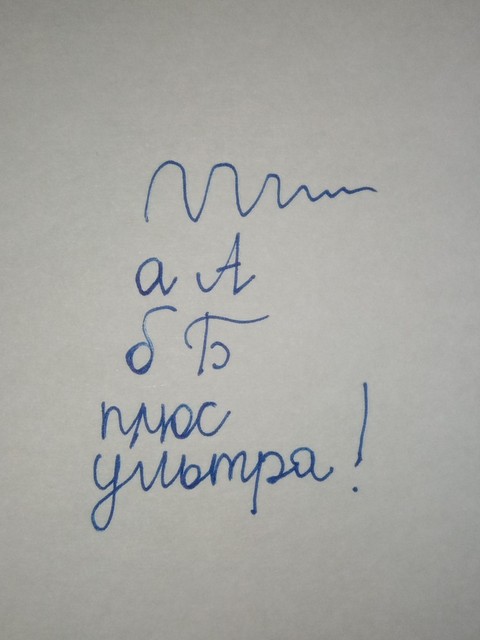 а А
б Б
плюс
ультра!